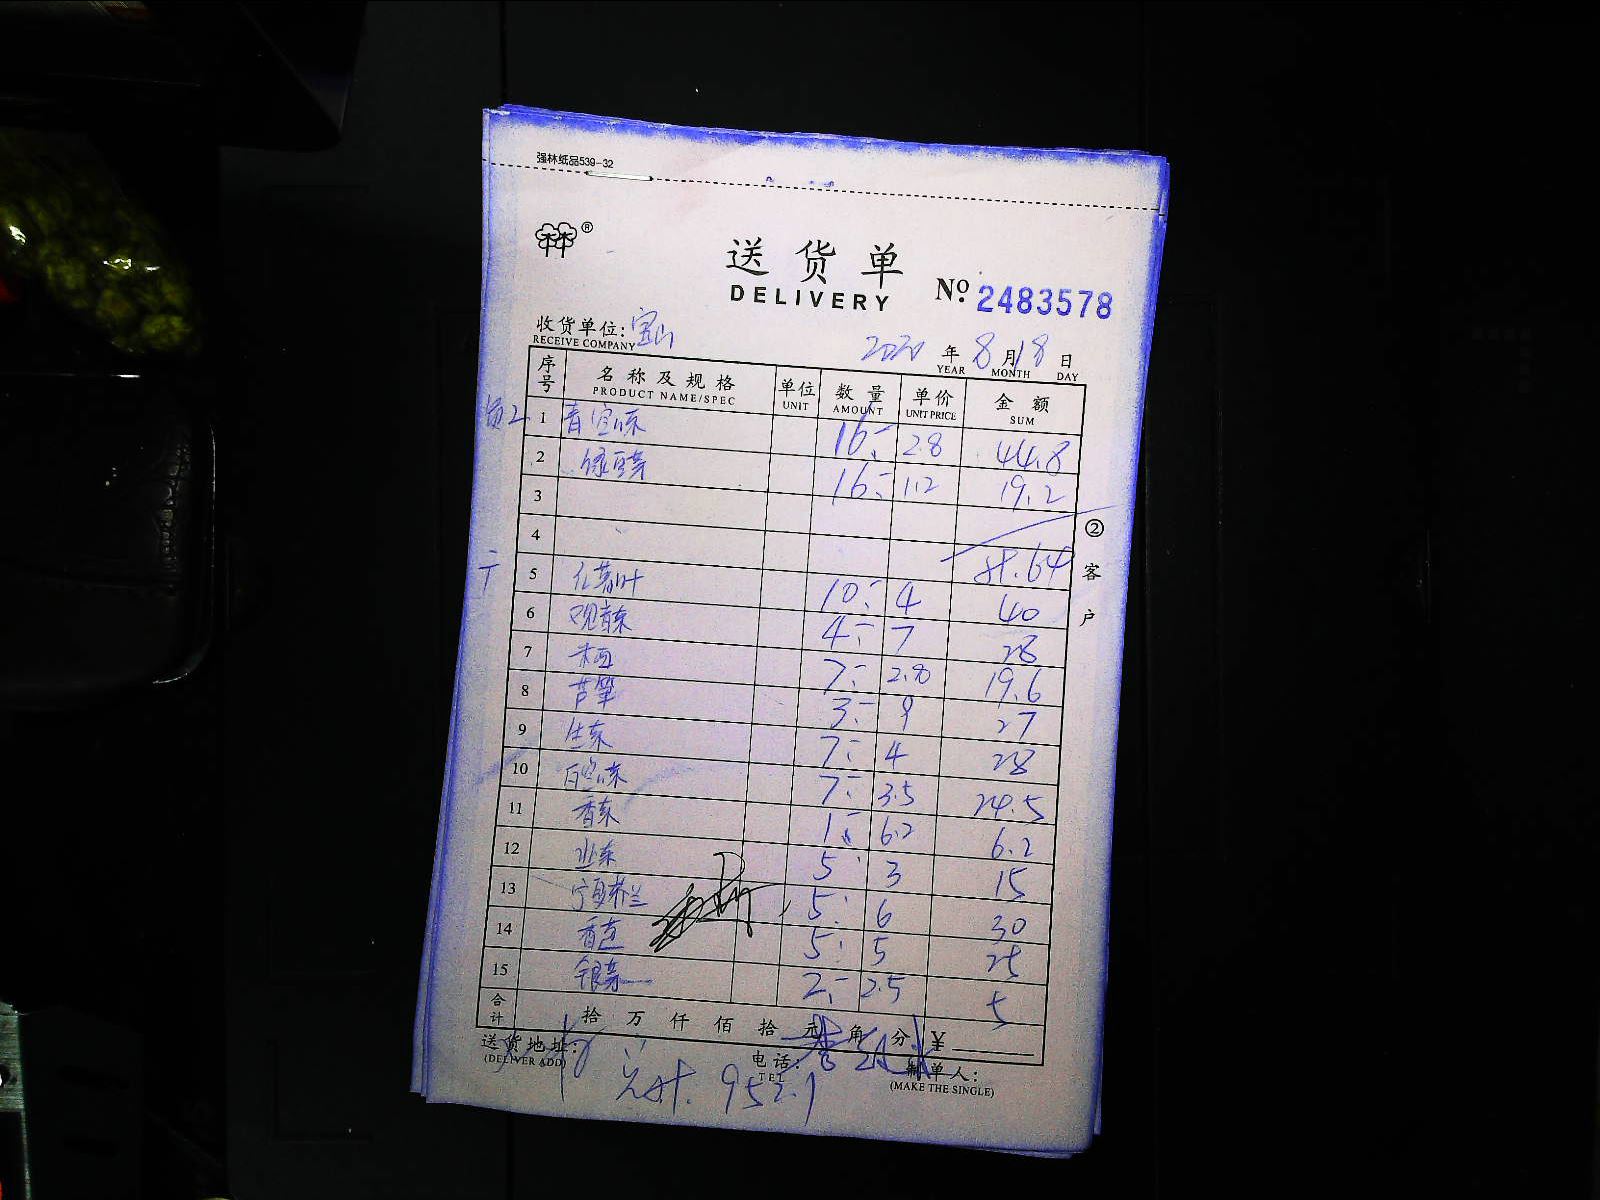 强林纸品539-32
®
送货单
DELIVERY
No. 2483578
收货单位: 宝山
RECEIVE COMPANY
2020 年 8 月 18 日
YEAR MONTH DAY
序号 名称及规格 单位 数量 单价 金额
PRODUCT NAME/SPEC UNIT AMOUNT UNIT PRICE SUM
员工 1 青 16 2.8 44.8
2 绿豆芽 16 1.2 19.2
3
4 计.64
5 叶 10 4 40
6 4 7 28
7 7 2.8 19.6
8 芦笋 3 9 27
9 生菜 7 4 28
10 7 3.5 24.5
11 香菜 1 6.2 6.2
12 5 3 15
13 宁夏芥兰 5 6 30
14 5 5 25
15 银芽 2 2.5 5
合计 拾 万 仟 佰 拾 元 角 分 ¥
② 客户
送货地址:
(DELIVER ADD)
电话:
TEL
制单人:
(MAKE THE SINGLE)
计. 952.1